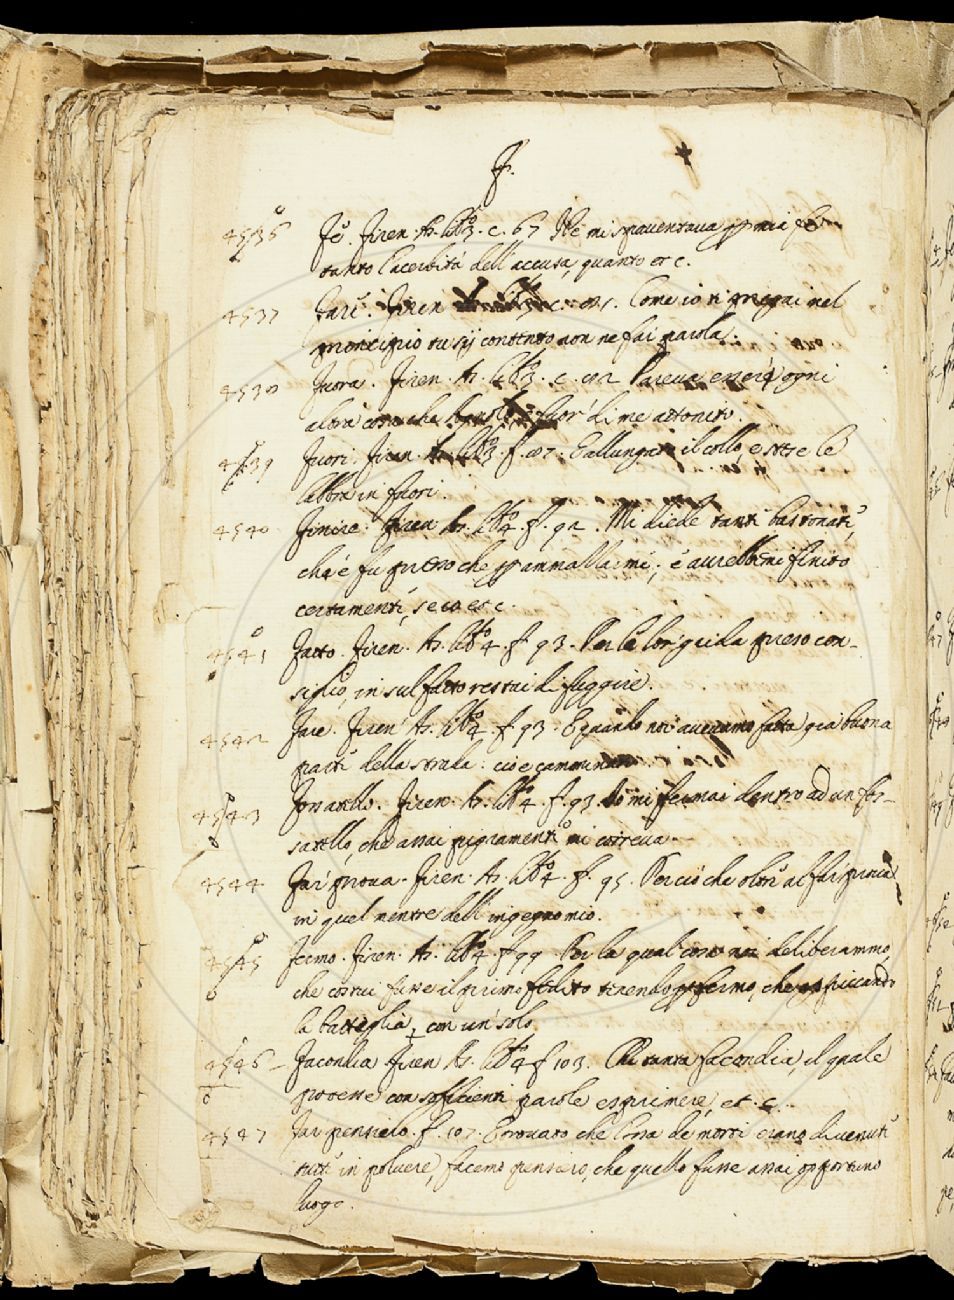 F.
4536 Fé. Firen. As. lib.o 3. c. 67 Ne mi spaventava
tanto l'acerbità dell'accusa, quanto et c.
4537 Fari. Firen c. Come io ti pregai nel
principio tu sij contento non ne far parola.
4538 Fuora. Firen. As. lib.o 3. c. Pareva essere ogni
altra cosa che fuor di me attonito.
4539 Fuori. Firen. As. lib.o 3. f. E allungare il collo, e
labbra in fuori.
4540 Finire. Firen As. lib.o 4. f. 92. Mi diede tanti bastonate,
che e' fu presso che ammazzarmi; e aurebbemi finito
certamente, se co et c.
4541 Fatto. Firen. As. lib.o 4. f. 93. Per le lor grida preso con-
siglio, in sul fatto restai di fuggire.
4542 Fare. Firen. As. lib.o 4. f. 93. E quando noi avemmo fatta già buona
parte della strada: cioè
4543 Fossatello. Firen. As. lib.o 4. f. 93. Io mi fermai dentro ad un fos-
satello, che assai pigramente mi correva.
4544 Far prova. Firen. As. lib.o 4. f. 95. Perciò che oltre al far pruova
in quel mentre dell'ingegno mio.
4545 Fermo. Firen. As. lib.o 4. f. 99 Per la qual cosa noi deliberammo,
che costui fusse il primo tenendo per fermo, che appiccando
la battaglia con un solo.
4546 Facondia Firen As. lib.o 4 f. 103. Chi tanta facondia, il quale
potesse con sofficienti parole esprimere, et. c.
4547 Far pensiero. f. 107. E trovato che l'ossa de morti erano divenuti
tutti in polvere, facemo pensiero, che quello fusse assai opportuno
luogo.